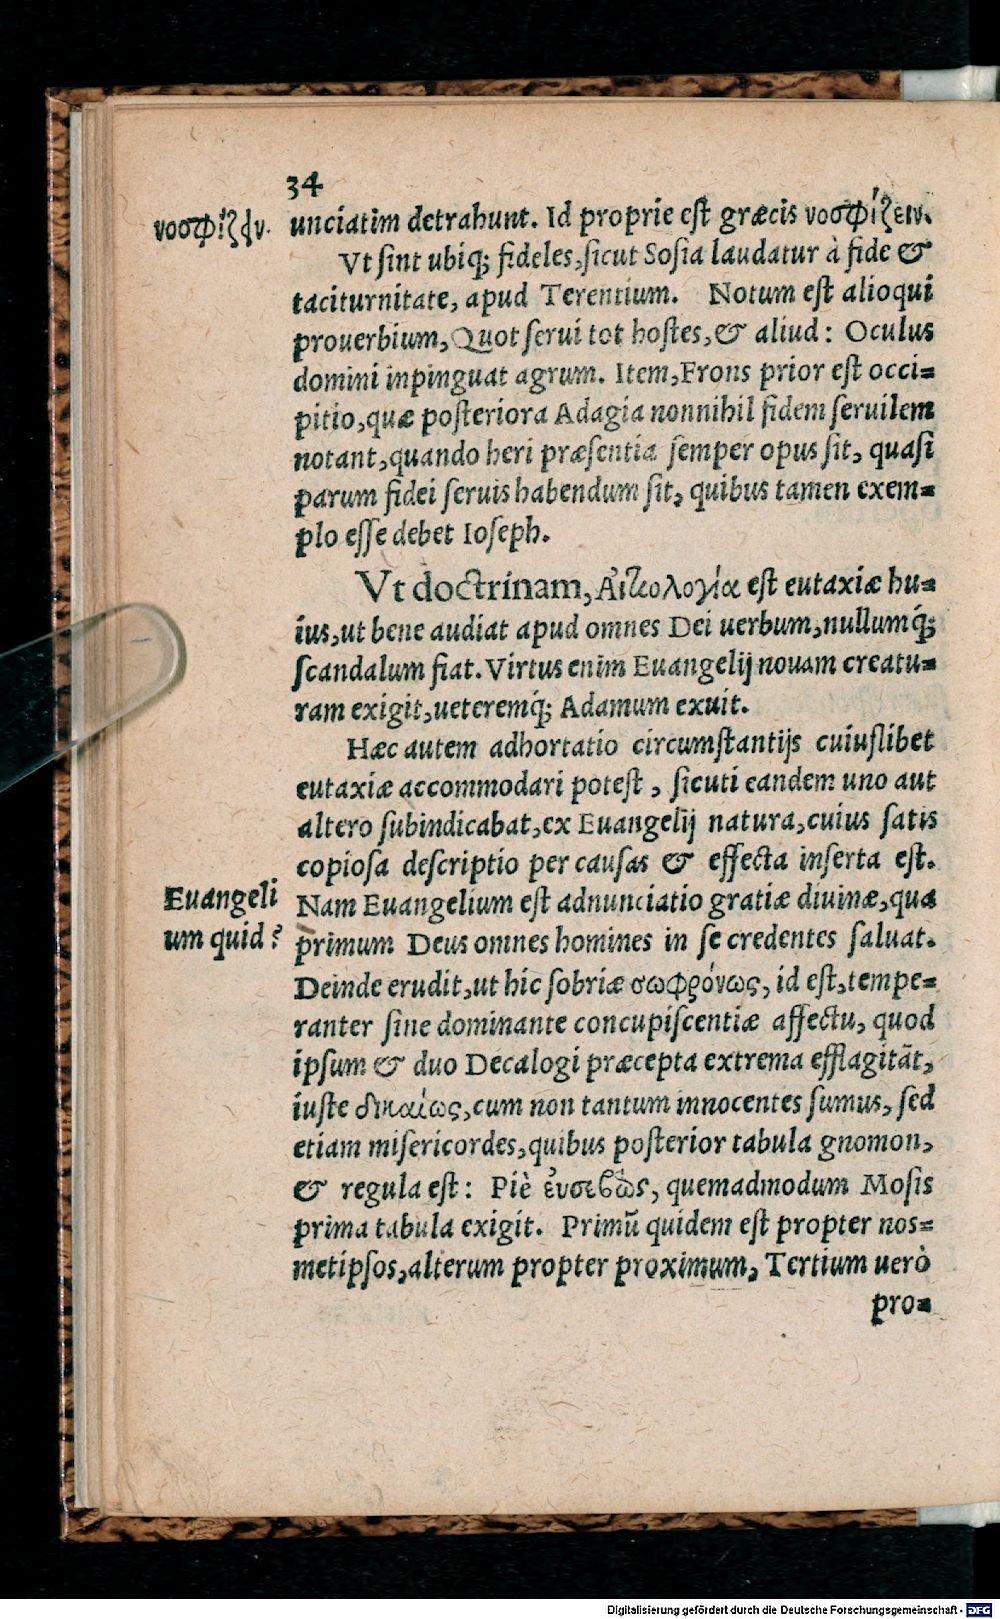 34
νοσφίζειν.
unciatim detrahunt. Id proprie est græcis νοσφίζειν.
Vt sint ubiq; fideles, sicut Sosia laudatur à fide &
taciturnitate, apud Terentium. Notum est alioqui
prouerbium, Quot serui tot hostes, & aliud: Oculus
domini inpinguat agrum. Item, Frons prior est occi=
pitio, quæ posteriora Adagia nonnihil fidem seruilem
notant, quando heri præsentia semper opus sit, quasi
parum fidei seruis habendum sit, quibus tamen exem=
plo esse debet Ioseph.
Vt doctrinam, Αἰτιολογία est eutaxiæ hu=
ius, ut bene audiat apud omnes Dei uerbum, nullumq́;
scandalum fiat. Virtus enim Euangelij nouam creatu=
ram exigit, ueteremq́; Adamum exuit.
Hæc autem adhortatio circumstantijs cuiuslibet
eutaxiæ accommodari potest, sicuti eandem uno aut
altero subindicabat, ex Euangelij natura, cuius satis
copiosa descriptio per causas & effecta inserta est.
Euangeli
um quid?
Nam Euangelium est adnunciatio gratiæ diuinæ, qua
primum Deus omnes homines in se credentes saluat.
Deinde erudit, ut hic sobriæ σωφρόνως, id est, tempe=
ranter sine dominante concupiscentiæ affectu, quod
ipsum & duo Decalogi præcepta extrema efflagitāt,
iuste δικαίως, cum non tantum innocentes sumus, sed
etiam misericordes, quibus posterior tabula gnomon,
& regula est: Piè ἐυσεβῶς, quemadmodum Mosis
prima tabula exigit. Primū quidem est propter nos=
metipsos, alterum propter proximum, Tertium uerò
pro=
Digitalisierung gefördert durch die Deutsche Forschungsgemeinschaft - DFG